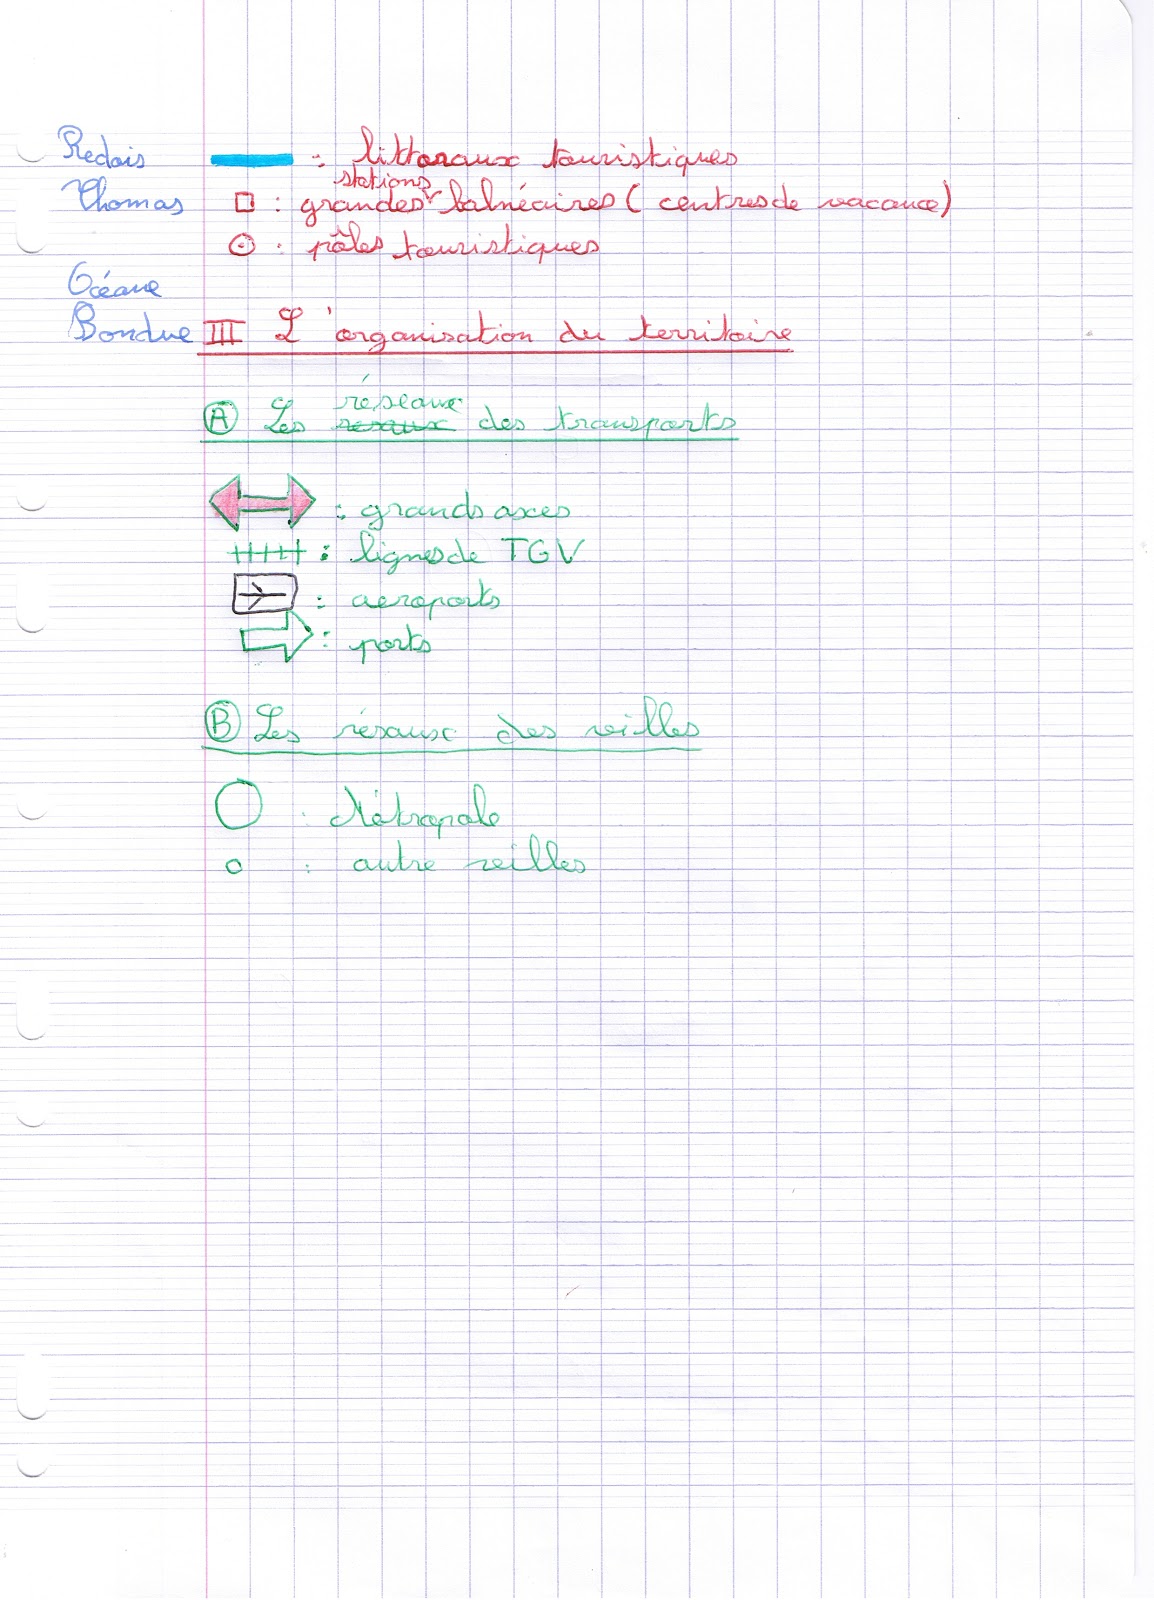 Redois
: littoraux touristiques
stations
Thomas
: grandes balnéaires ( centres de vacance)
: pôles touristiques
Océane
Bondue
III L'organisation du territoire
réseaux
A Les resaux des transports
: grands axes
: lignes de TGV
: aeroports
: ports
B Les résaux des villes
: Métropole
: autre villes